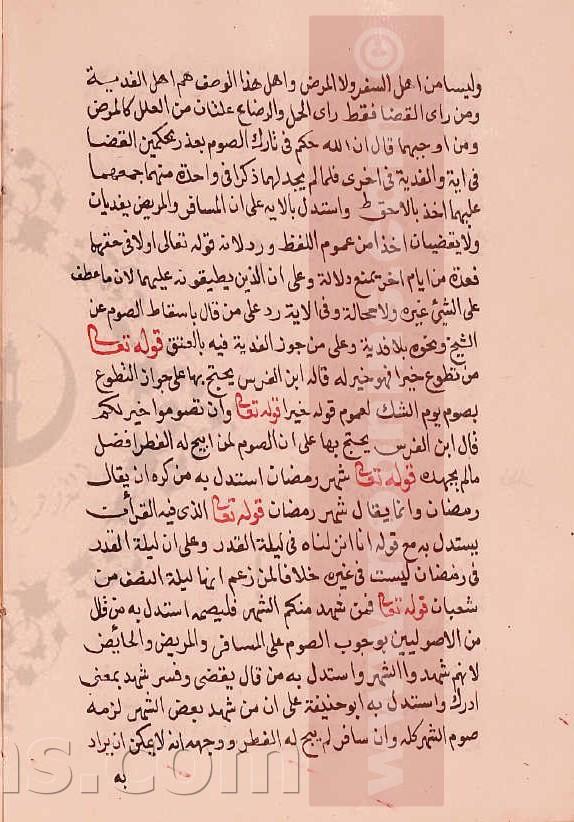 وليسا من اهل السفر ولا المرض واهل هذا الوصف هم اهل الفدية
ومن راى القضا فقط راى الحمل والرضاع علتان من العلل كالمرض
ومن اوجبهما قال ان الله حكم في تارك الصوم بعذر بحكمين القضا
في اية والفدية في اخرى فلما لم يجد لهما ذكرا في واحدة منهما جمعهما
عليهما اخذ بالاحوط واستدل بالاية على ان المسافر والمريض يفديان
ولا يقضيان اخذا من عموم اللفظ ورد لانه قوله تعالى اولا في حقهما
فعدة من ايام اخر يمنع دلالة وعلى ان الذين يطيقونه عليهما لان ما عطف
على الشيئ غيره ولا محالة وفي الاية رد على من قال باسقاط الصوم عن
الشيخ ونحوه بلا فدية وعلى من جوز الفدية فيه بالعتق قوله تعالى
من تطوع خيرا فهو خير له قاله ابن الفرس يحتج بها على جواز التطوع
بصوم يوم الشك لعموم قوله خيرا قوله تعالى وان تصوموا خير لكم
قال ابن الفرس يحتج بها على ان الصوم لمن ابيح له الفطر افضل
ما لم يجهده قوله تعالى شهر رمضان استدل به من كره ان يقال
رمضان وانما يقال شهر رمضان قوله تعالى الذي فيه القرأن
يستدل به مع قوله انا انزلناه في ليلة القدر وعلى ان ليلة القدر
في رمضان ليست في غيره خلافا لمن زعم انها ليلة النصف من
شعبان قوله تعالى فمن شهد منكم الشهر فليصمه استدل به من قال
من الاصوليين بوجوب الصوم على المسافر والمريض والحائض
لانهم شهدوا الشهر واستدل به من قال يقضي وفسر شهد بمعنى
ادرك واستدل به ابو حنيفة على ان من شهد بعض الشهر لزمه
صوم الشهر كله وان سافر لم يبح له الفطر ووجهه انه لا يمكن ان يراد
به